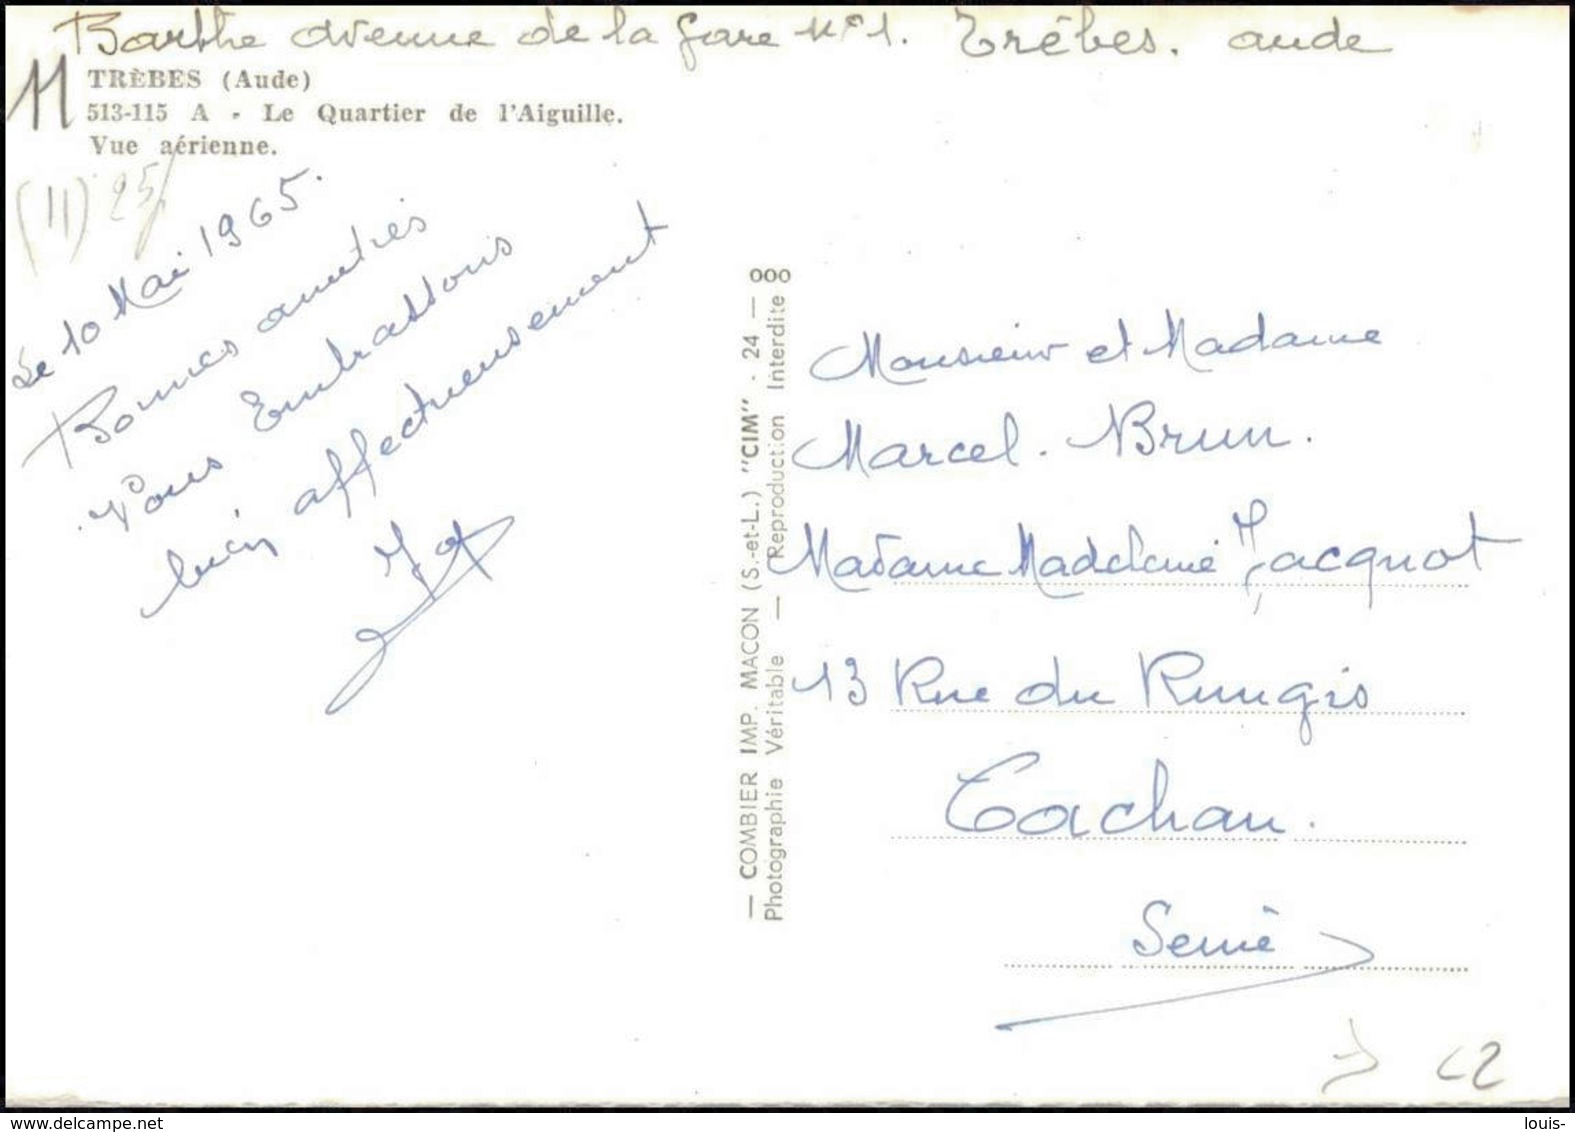 Barthe avenue de la gare N°1. Trèbes. aude
11
TRÈBES (Aude)
513-115 A - Le Quartier de l'Aiguille.
Vue aérienne.
(11) 25
Le 10 Mai 1965.
Bonnes amitiés
Vous Embrassons
bien affectueusement
— COMBIER IMP. MACON (S.-et-L.) "CIM" - 24 — 000
Photographie Véritable — Reproduction Interdite
Monsieur et Madame
Marcel. Brun.
Madame Madeleine Jacquot
13 Rue du Rungis
Cachan.
Seine
louis-